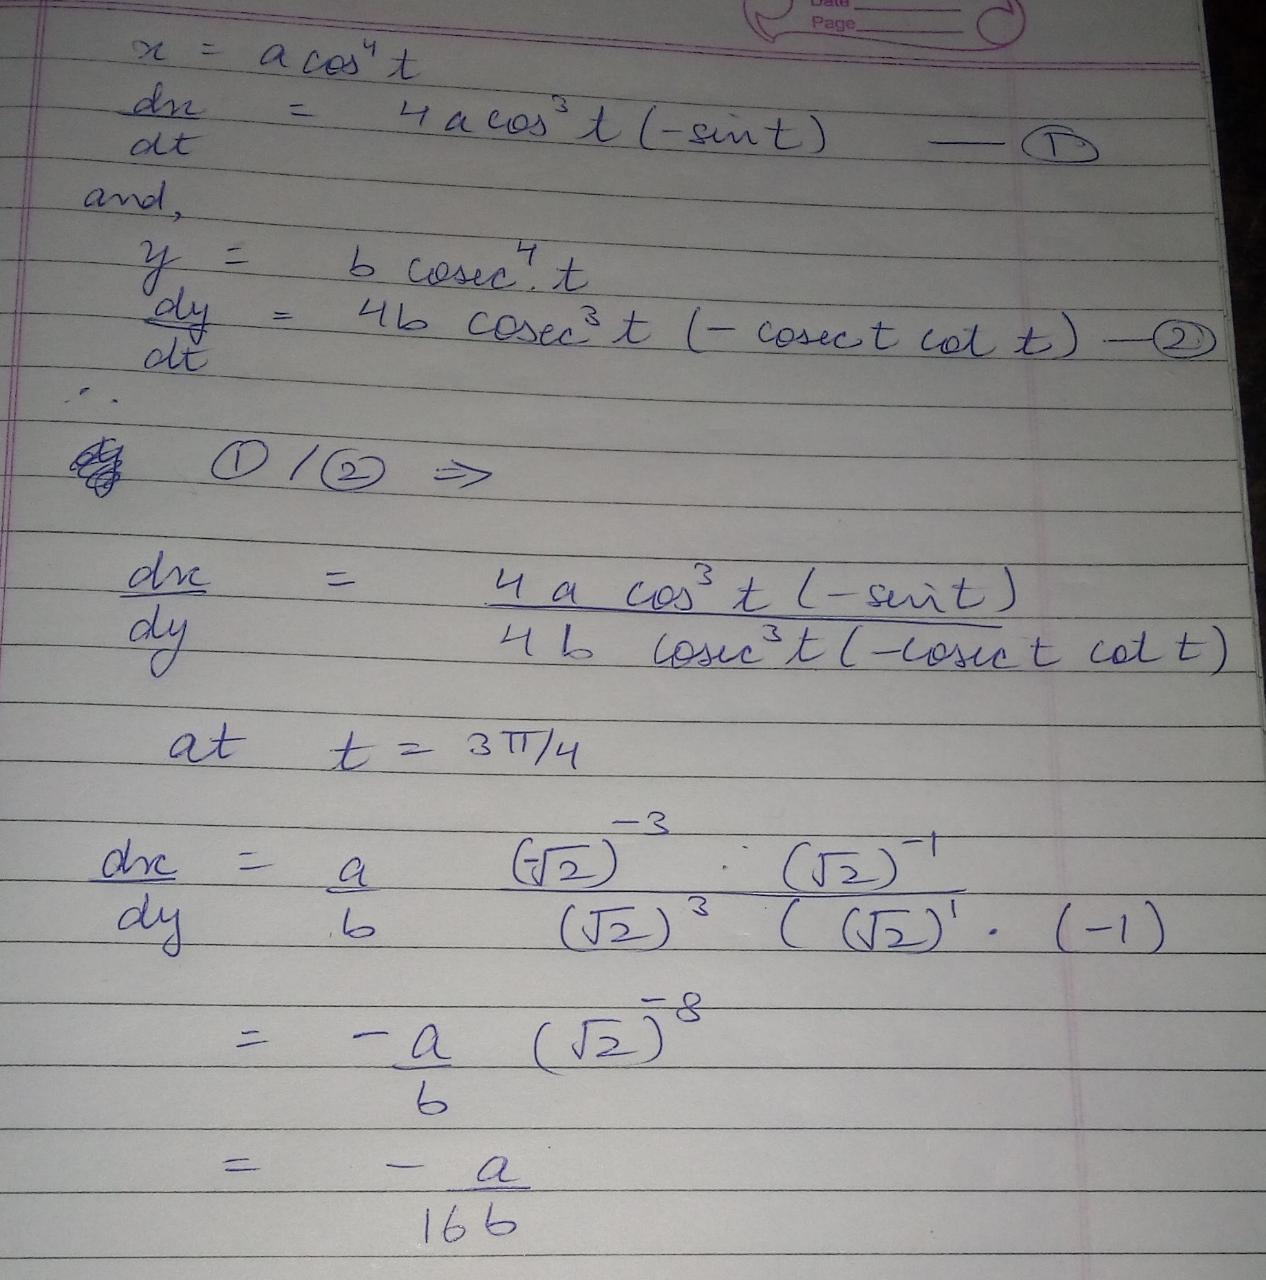 Date
Page
x = a cos⁴ t
dx/dt = 4 a cos³ t (-sin t) — ①
and,
y = b cosec⁴. t
dy/dt = 4b cosec³ t (- cosec t cot t) — ②
① / ② ⇒
dx/dy = 4 a cos³ t (-sin t) / 4 b cosec³ t (-cosec t cot t)
at t = 3π/4
dx/dy = a/b (-√2)⁻³ · (√2)⁻¹ / (√2)³ ( (√2)¹ · (-1)
= - a/b (√2)⁻⁸
= - a/16 b